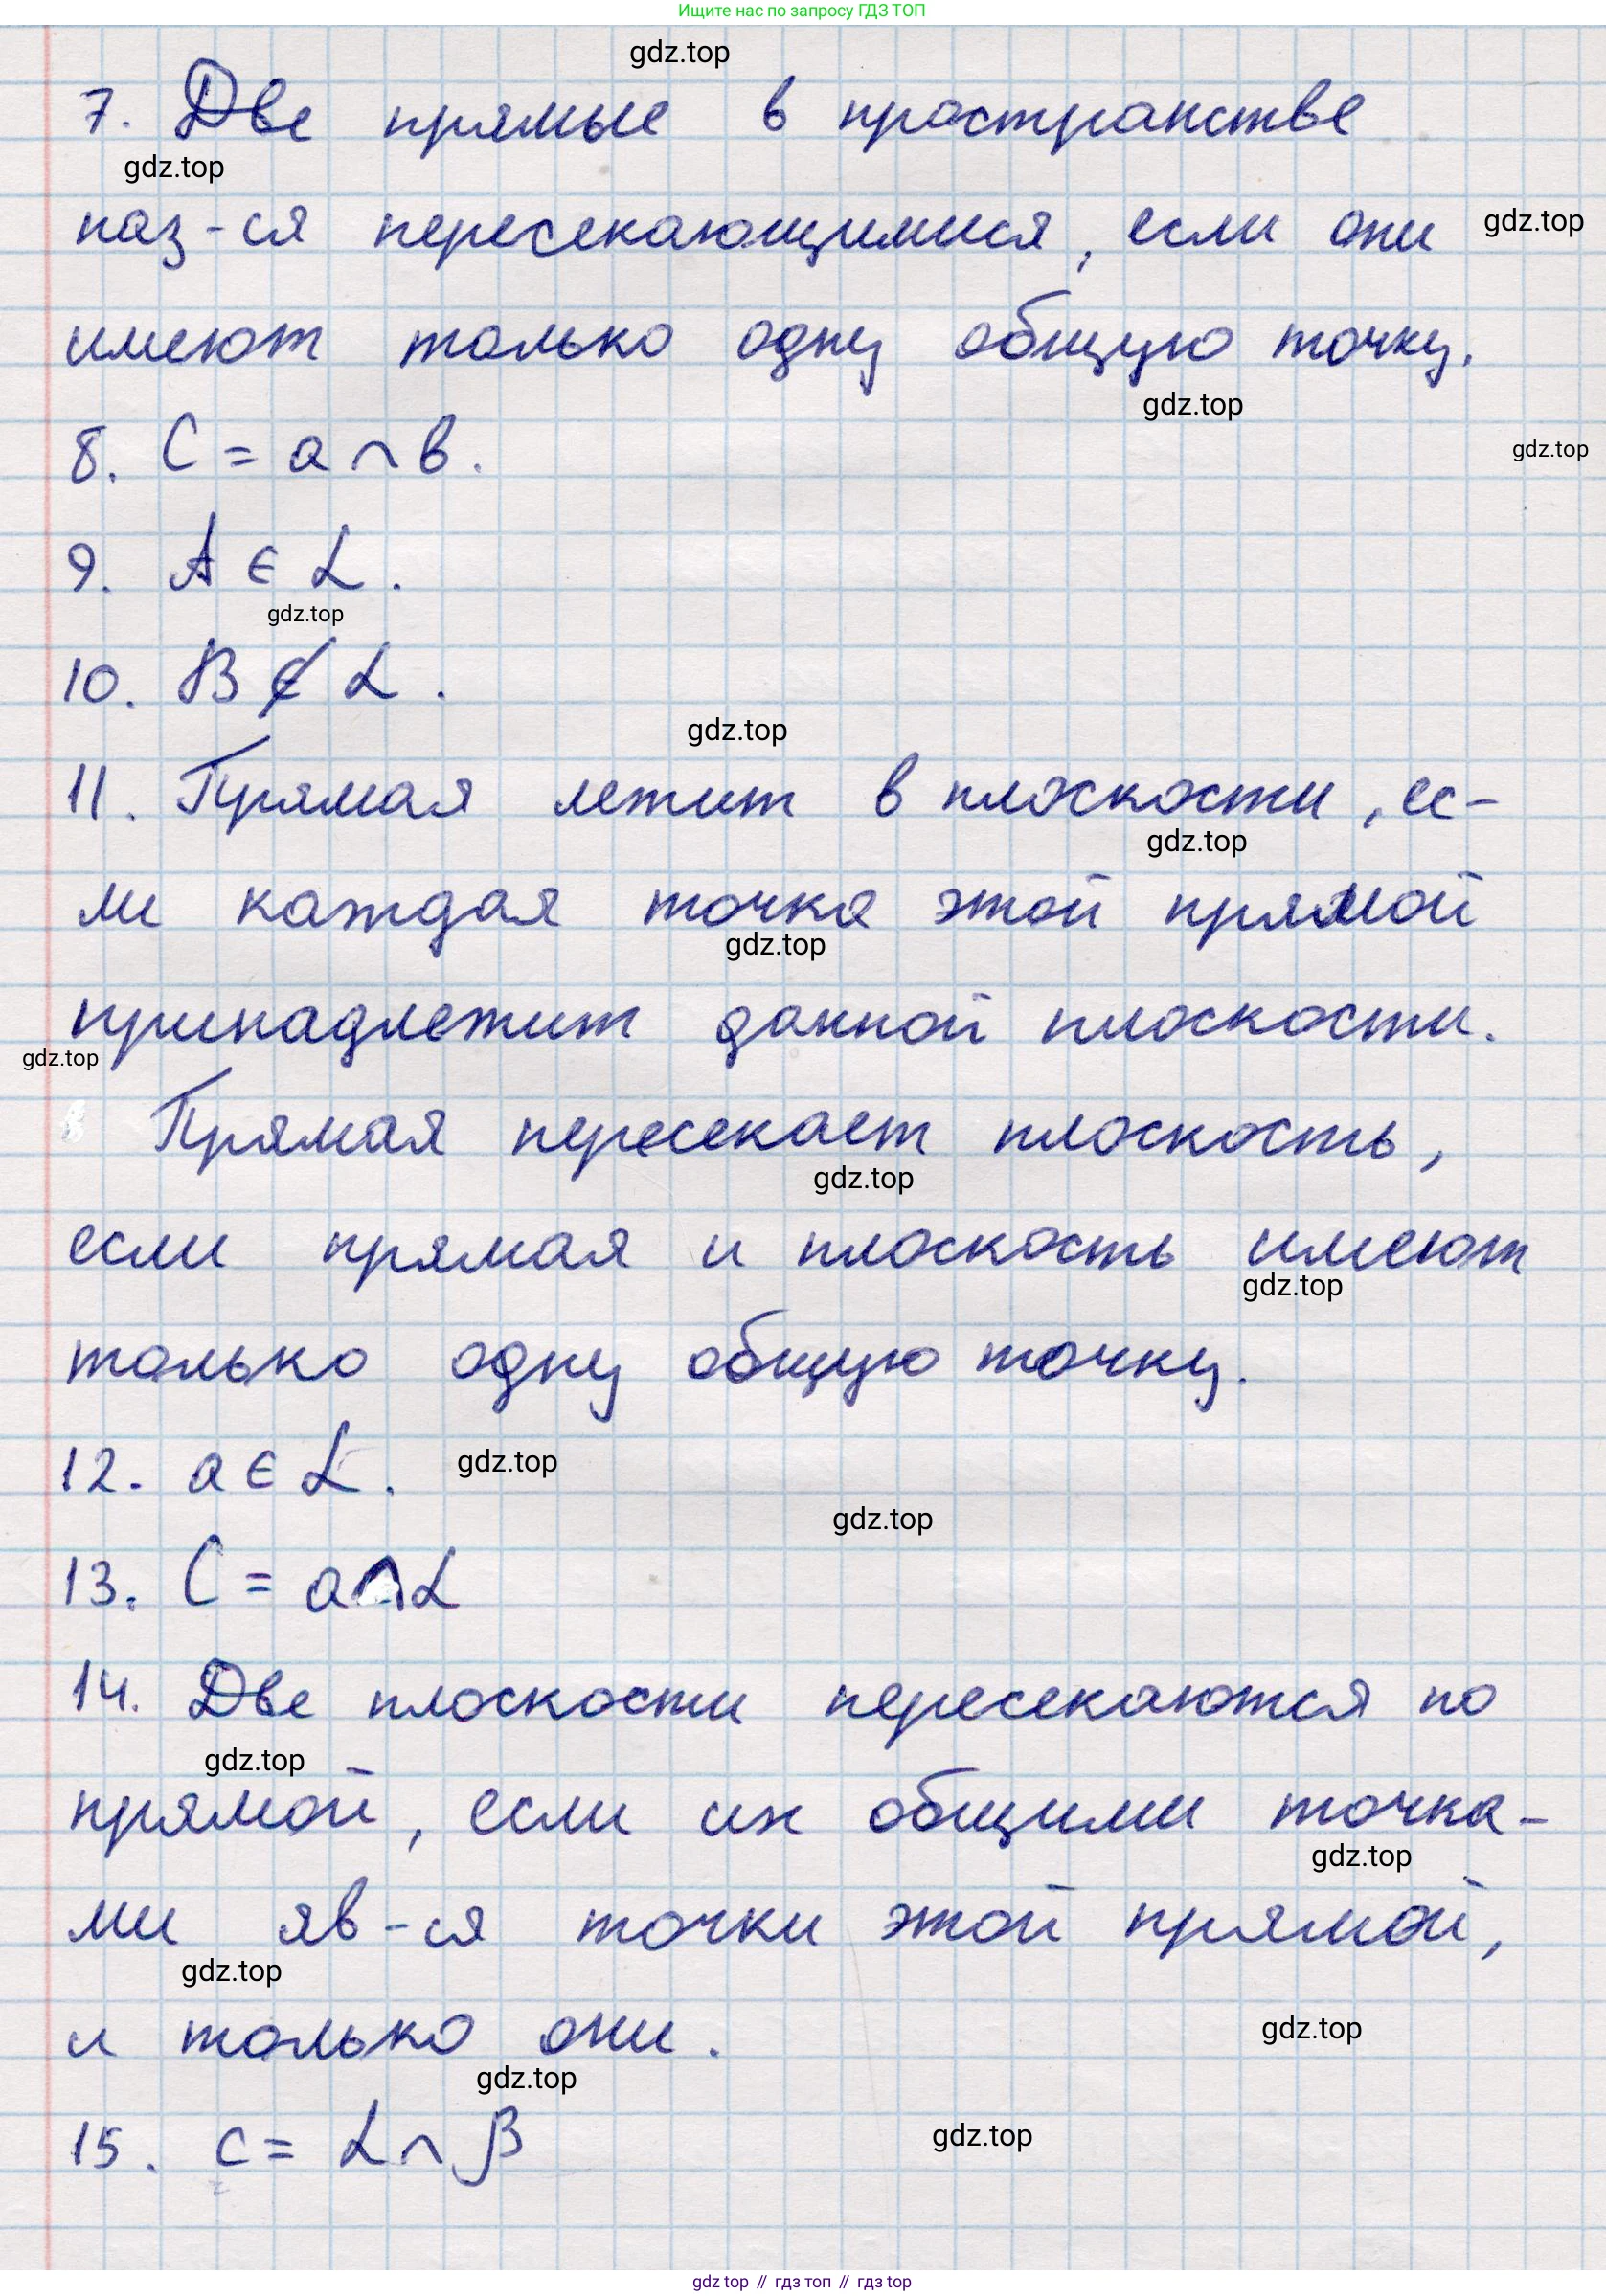 Ищите нас по запросу ГДЗ ТОП
gdz.top
7. Две прямые в пространстве
gdz.top
наз-ся пересекающимися, если они
gdz.top
имеют только одну общую точку.
gdz.top
8. C = a ∩ b.
gdz.top
9. A ∈ α.
gdz.top
10. B ∉ α.
gdz.top
11. Прямая лежит в плоскости, ес-
gdz.top
ли каждая точка этой прямой
gdz.top
принадлежит данной плоскости.
gdz.top
Прямая пересекает плоскость,
gdz.top
если прямая и плоскость имеют
gdz.top
только одну общую точку.
12. a ∈ α.
gdz.top
gdz.top
13. C = a ∩ α
14. Две плоскости пересекаются по
gdz.top
прямой, если их общими точка-
gdz.top
ми яв-ся точки этой прямой,
gdz.top
и только они.
gdz.top
gdz.top
15. c = α ∩ β
gdz.top
gdz top // гдз топ // гдз top